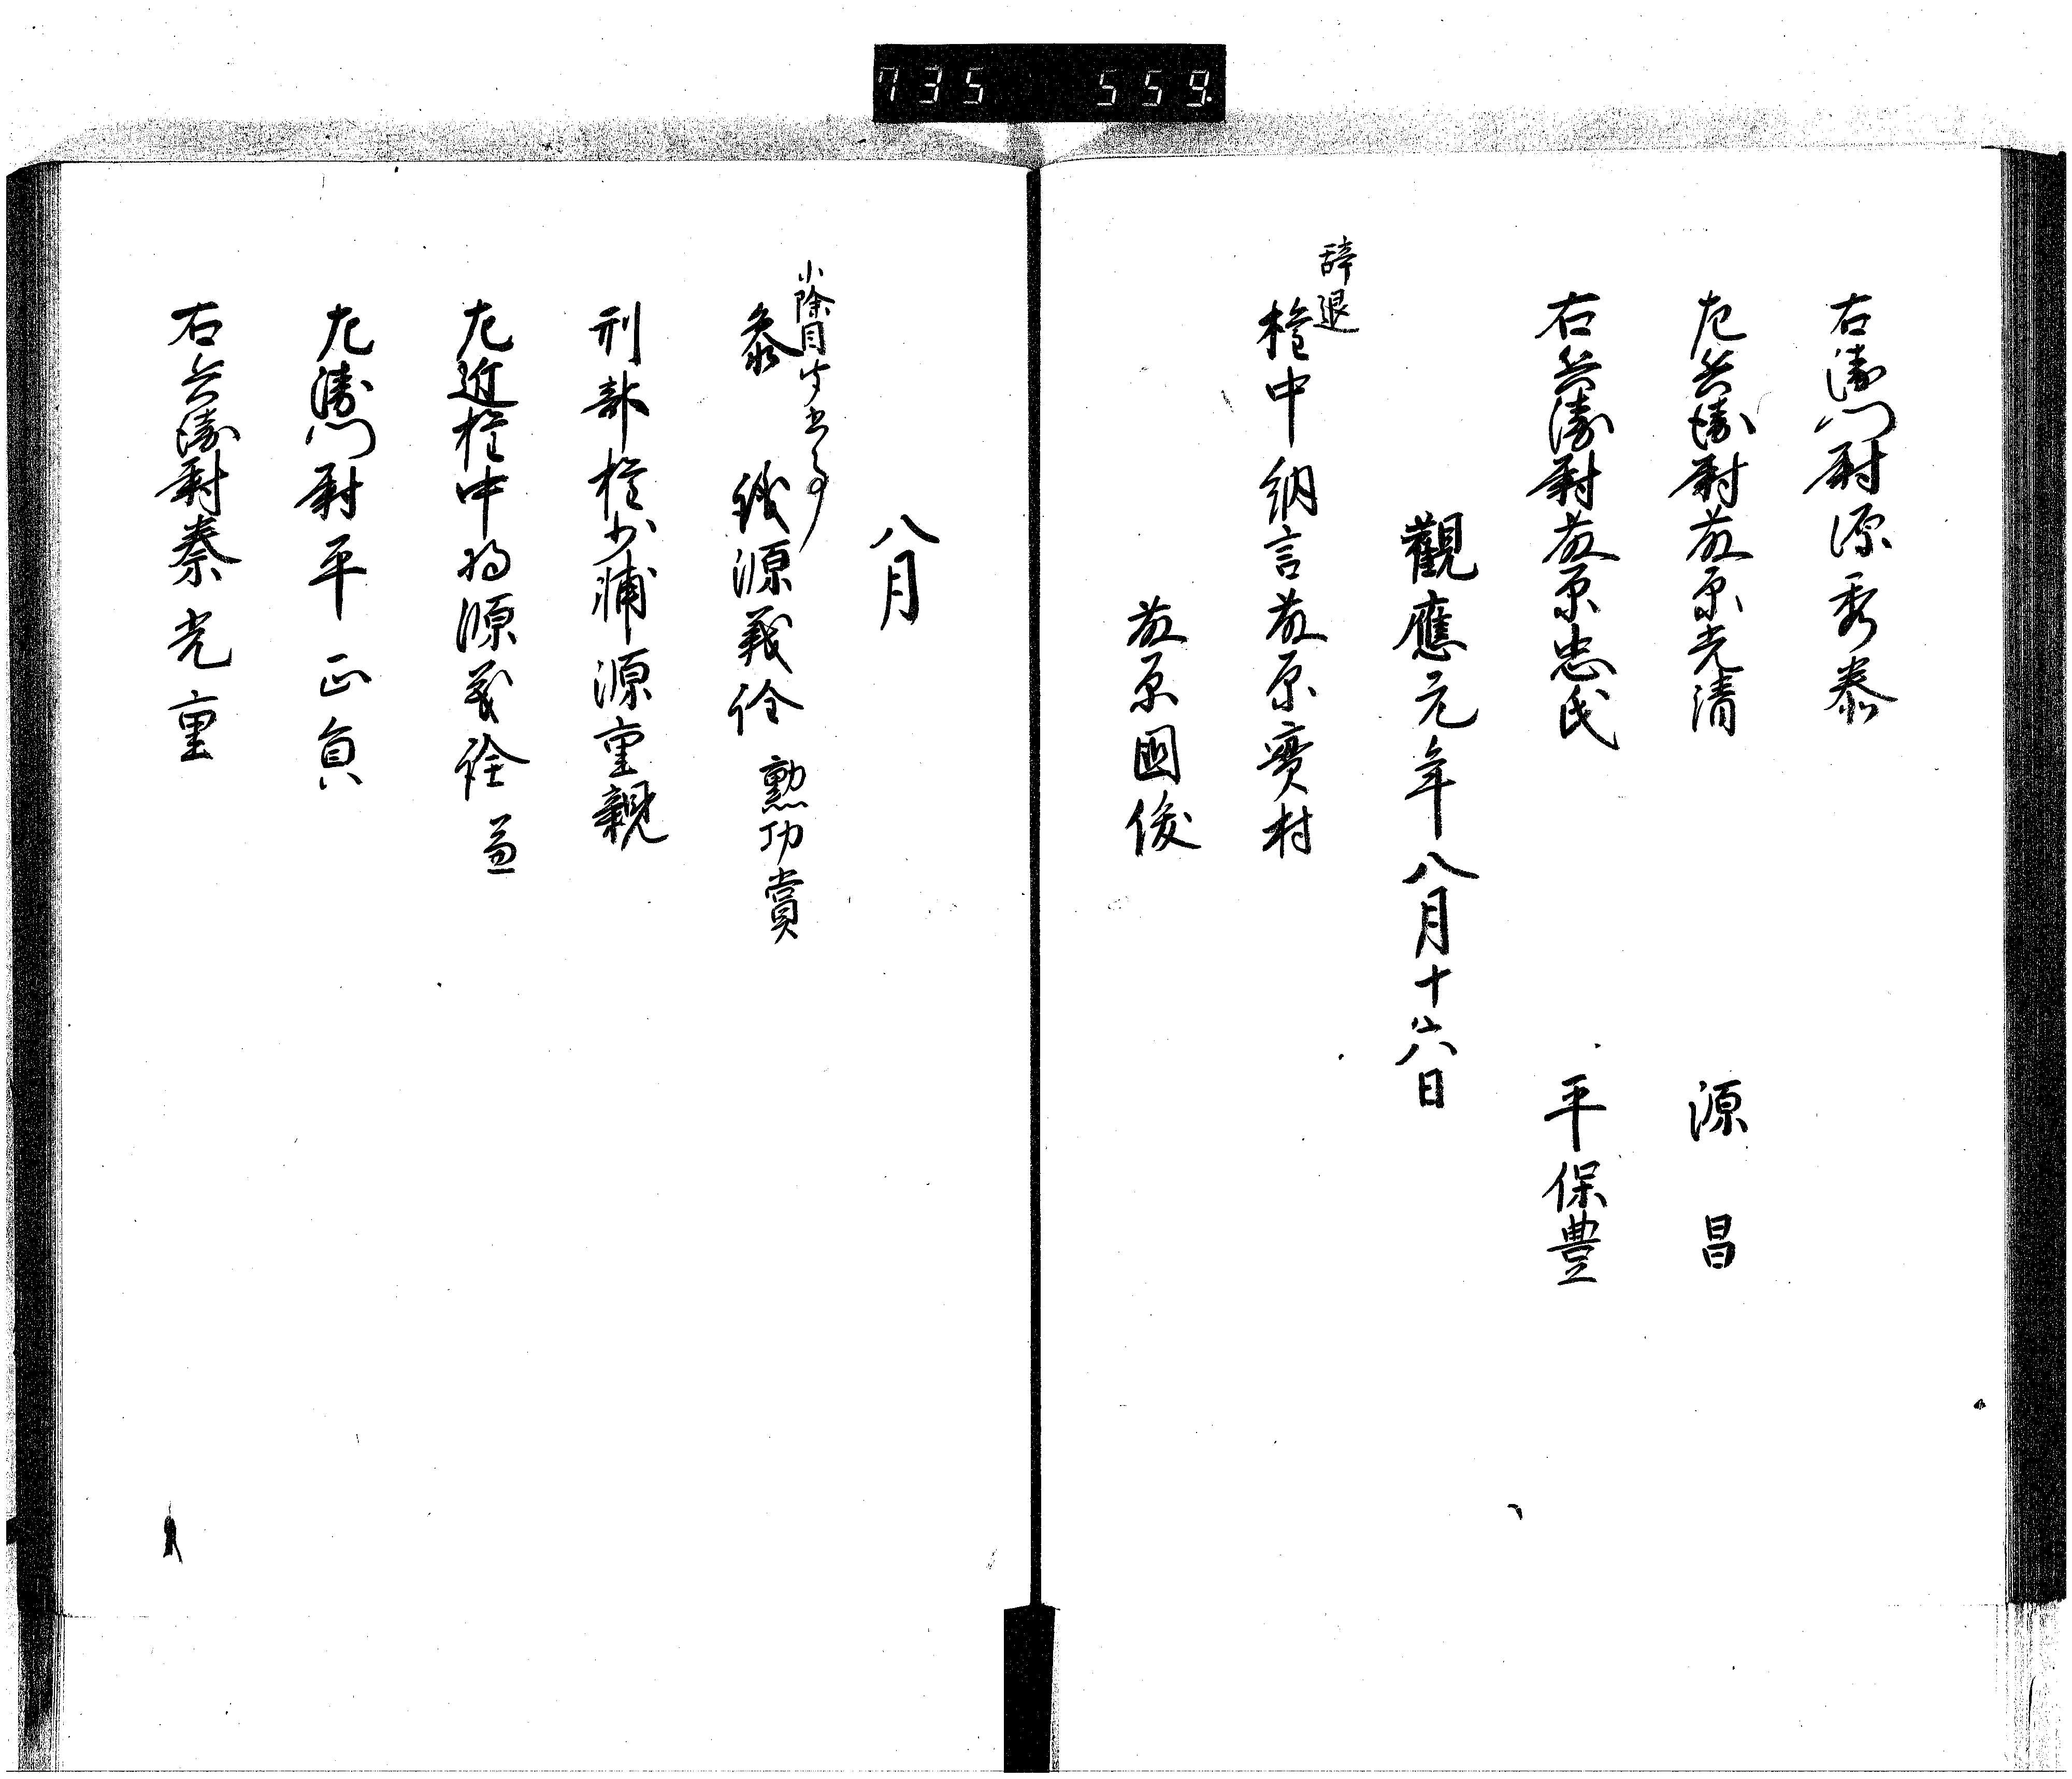 735 559
右衛門尉源秀泰
左兵衛尉藤原光清 源昌
右兵衛尉藤原忠氏 平保豊
觀應元年八月十六日
辞退
権中納言藤原實村
藤原國俊
八月
小除目聞書事
參議源義詮 勲功賞
刑部権少輔源重親
左近権中将源義詮 兼
左衛門尉平正員
右兵衛尉秦光重